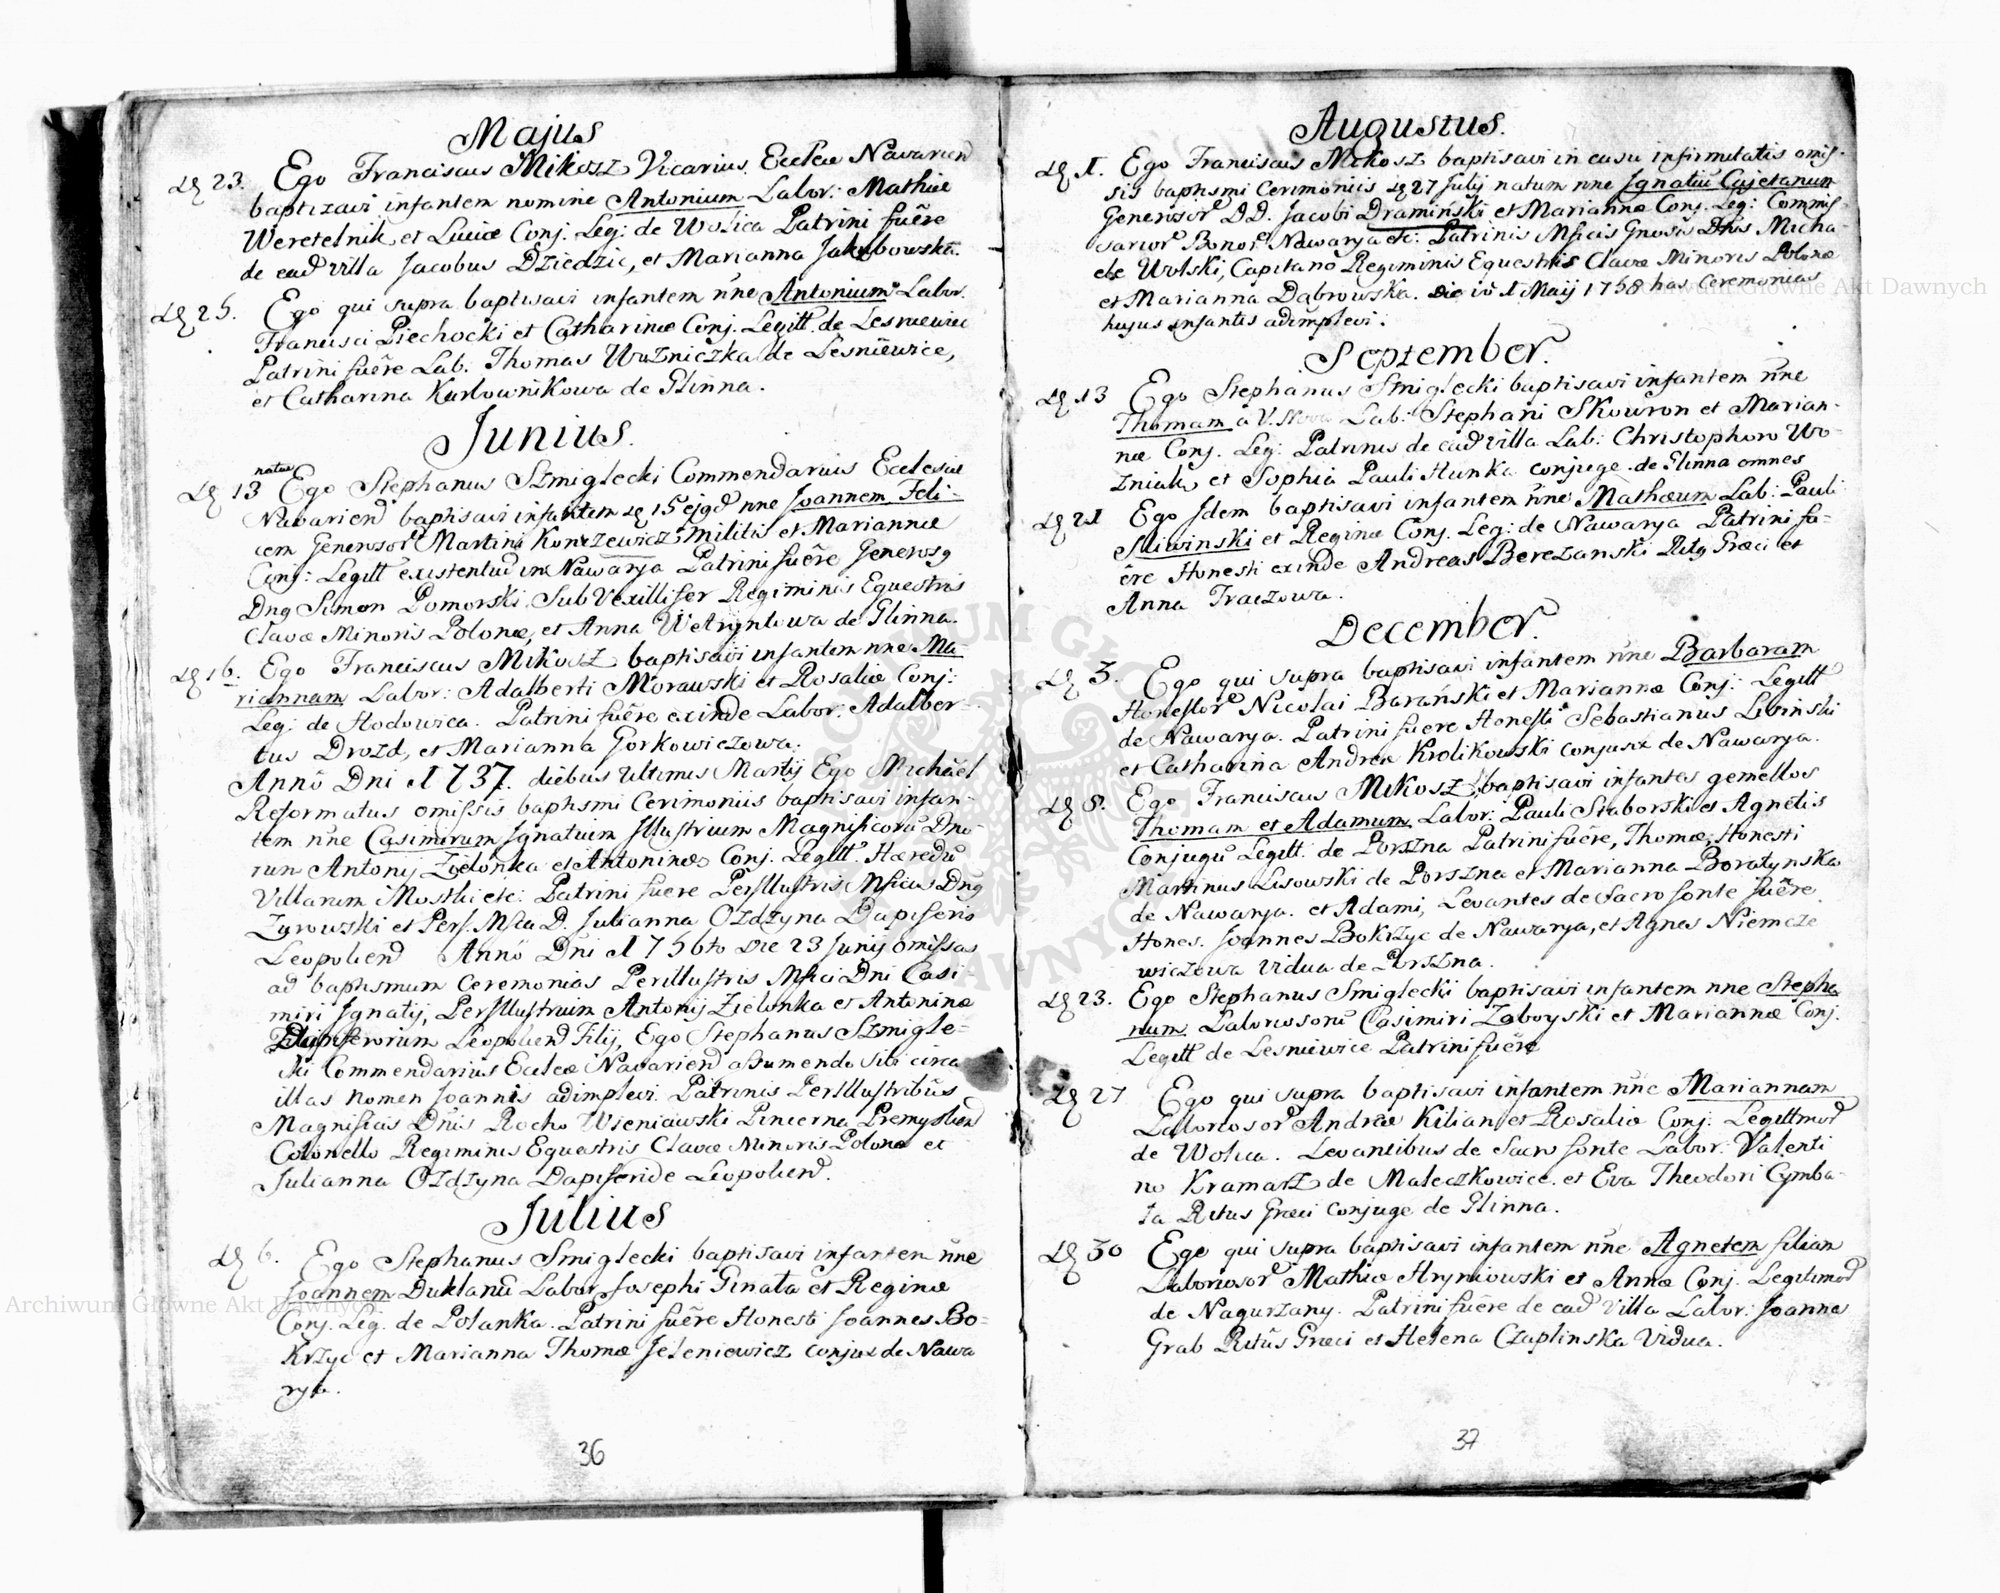 Majus
Dg 23. Ego Franciscus Mikosz Vicarius Eccleæ Navarien
baptizavi infantem nomine Antonium Labor: Mathiæ
Weretelnik et Luciæ Conj. Leg: de Wolica Patrini fuêre
de ead villa Jacobus Dziedzic, et Marianna Jakubowska.
Dg 25. Ego qui supra baptisavi infantem nne Antonium Labor.
Francisci Piechocki et Catharinæ Conj. Legitt. de Lesniewice
Patrini fuêre Lab. Thomas Wozniczka de Lesniewice,
et Catharina Karbownikowa de Glinna.
Junius.
natus
Dg 13 Ego Stephanus Szmiglecki Commendarius Ecclesiæ
Navarien baptisavi infantem Dg 15 ejgd nne Joannem Feli-
cem Generosor Martini Konrzewicz Militis et Mariannæ
Conj: Legitt existentiu in Nawarya Patrini fuêre Generosg
Dng Simon Pomorski SubVexillifer Regiminis Equestris
Clavæ Minoris Polonæ, et Anna de Glinna.
Dg 16. Ego Franciscus Mikosz baptisavi infantem nne Ma-
riannam Labor: Adalberti Morawski et Rosaliæ Conj:
Leg: de Hodowica. Patrini fuêre exinde Labor: Adalber-
tus Drozd, et Marianna Gorkowiczowa.
Anno Dni 1737. diebus ultimis Martij Ego Michael
Reformatus omissis baptismi Cerimoniis baptisavi infan-
tem nne Casimirum Ignatium Illustrium Magnificoru Dno-
rum Antonij Zielonka et Antoninæ Conj. Legitt. Hæredu
Villarum Mostki etc: Patrini fuere Perillustris Mficus Dng
Zyrowski et Perf. Mca D. Julianna Ozdzyna Dapiferis
Leopolien Anno Dni 1756to Die 23 Junij omissas
ad baptismum Ceremonias Perillustris Mfici Dni Casi-
miri Ignatij, Perillustrium Antonij Zielonka et Antoninæ
Dapiferorum Leopolien Filij, Ego Stephanus Szmigle-
cki Commendarius Eccleæ Navarien assumendo sibi circa
illas nomen Joannis adimplevi. Patrinis Perillustribus
Magnificis Dnis Rocho Wieniawski Pincerna Premyslien
Colonello Regiminis Equestris Clavæ Minoris Polonæ et
Julianna Ozdzyna Dapiferide Leopolien.
Julius
Dg 6. Ego Stephanus Smiglecki baptisavi infantem nne
Joannem Duklanu Labor Josephi Ginata et Reginæ
Conj. Leg. de Polanka. Patrini fuêre Honesti Joannes Bo-
krzyc et Marianna Thomæ Jeleniewicz conjux de Nawa
rya.
36
Augustus.
Dg 1. Ego Franciscus Mikosz baptisavi in casu infirmitatis omis-
sis baptismi Cerimoniis Dg 27 Julij natum nne Ignatiu Cajetanum
Generosor DD. Jacobi Dramiński et Mariannæ Conj. Leg: Commis-
sarior Bonor Nawarya etc: Patrinis Mficis Gnosis Dnis Micha-
ele Wolski, Capitano Regiminis Equestris Clavæ Minoris Polonæ
et Marianna Dąbrowska. Die 1 Maij 1758 has Ceremonias
hujus infantis adimplevi.
September.
Dg 13 Ego Stephanus Smiglecki baptisavi infantem nne
Thomam a V. Lab: Stephani Skowron et Marian-
næ Conj. Leg: Patrinis de ead villa Lab: Christophoro Wo-
zniak, et Sophia Pauli Hunka conjuge de Glinna omnes
Dg 21 Ego Idem baptisavi infantem nne Mathæum Lab: Pauli
Sliwinski et Reginæ Conj. Leg: de Nawarya Patrini fu-
êre Honesti exinde Andreas Berezanski Ritg Græci et
Anna Traczowa.
December.
Dg 3. Ego qui supra baptisavi infantem nne Barbaram
Honestor Nicolai Barański et Mariannæ Conj: Legitt
de Nawarya. Patrini fuere Honesti Sebastianus Lisinski
et Catharina Andreæ Krolikowski conjunx de Nawarya.
Dg 8. Ego Franciscus Mikosz baptisavi infantes gemellos
Thomam et Adamum Labor: Pauli Staborski et Agnetis
Conjugu Legitt. de Porszna Patrini fuêre, Thomæ, Honesti
Martinus Lisowski de Porszna et Marianna Boratynska
de Nawarya. et Adami, Levantes de Sacro fonte fuêre
Hones. Joannes Bokrzyc de Nawarya, et Agnes Niemcze
wiczowa Vidua de Porszna.
Dg 23. Ego Stephanus Smiglecki baptisavi infantem nne Stepha
num Laboriosoru Casimiri Zaboyski et Mariannæ Conj.
Legitt de Lesniewice Patrini fuêre
Dg 27 Ego qui supra baptisavi infantem nne Mariannam
Laboriosor Andreæ Kilian et Rosaliæ Conj: Legittmor
de Wolica. Levantibus de Sacro fonte Labor: Valenti
no Kramarz de Maleczkowice. et Eva Theodori Cymba-
la Ritus Græci Conjuge de Glinna.
Dg 30 Ego qui supra baptisavi infantem nne Agnetem filian
Laboriosor Mathiæ Hryniowski et Annæ Conj. Legitimor
de Nagurzany. Patrini fuêre de ead Villa Labor: Joannes
Grab Ritûs Græci et Helena Czaplinska Vidua.
37
Archiwum Główne Akt Dawnych
Archiwum Główne Akt Dawnych
ARCHIWUM GŁÓWNE AKT DAWNYCH